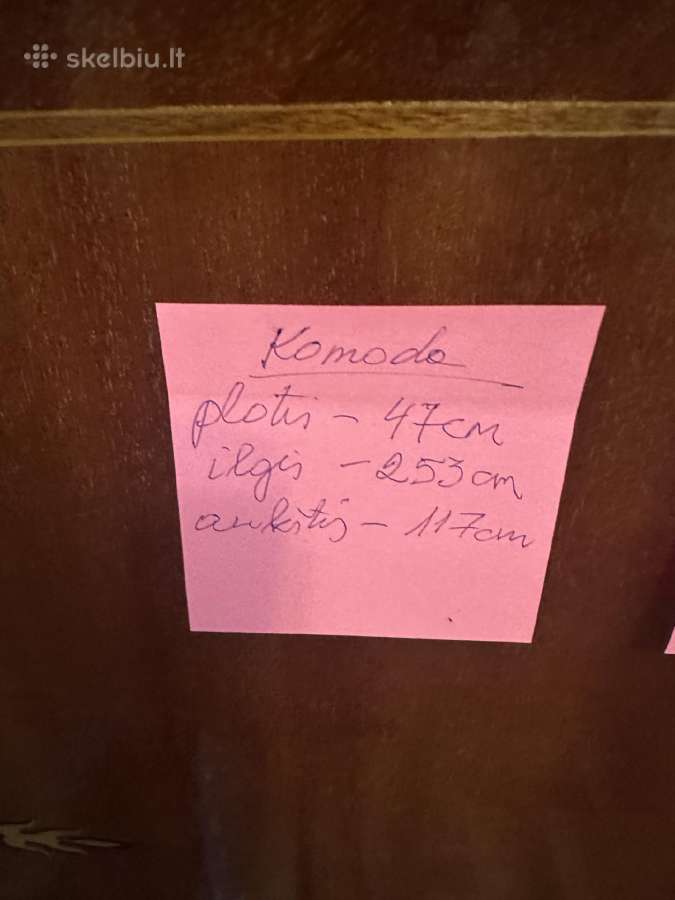 skelbiu.lt
Komoda
plotis - 47cm
ilgis - 253cm
aukštis - 117cm